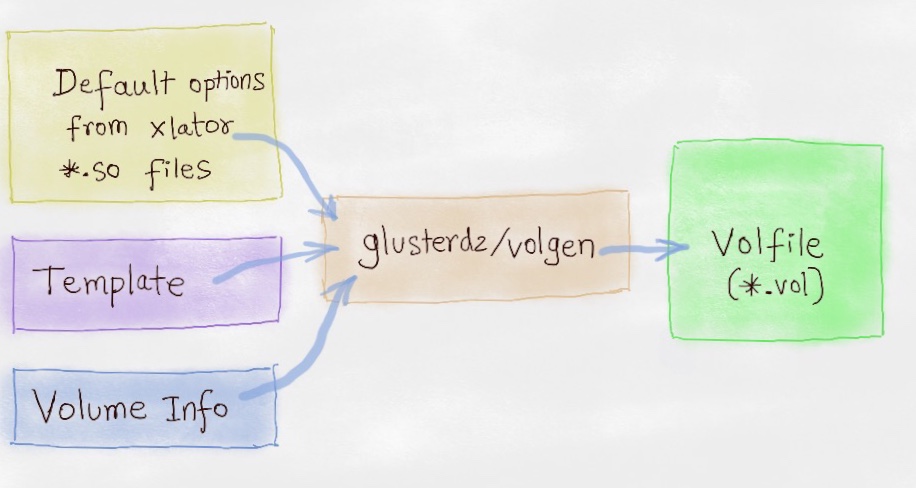 Default options
from xlator
*.so files
Template
Volume Info
glusterd2/volgen
Volfile
(*.vol)